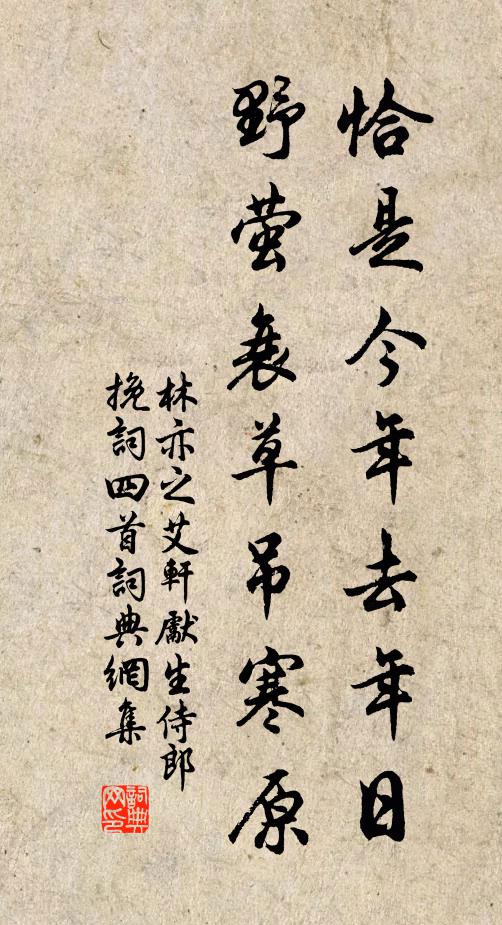 恰是今年去年日
野萤衰草吊寒原
林亦之艾軒獻生侍郎
挽詞四首詞典網集
詞典
网印